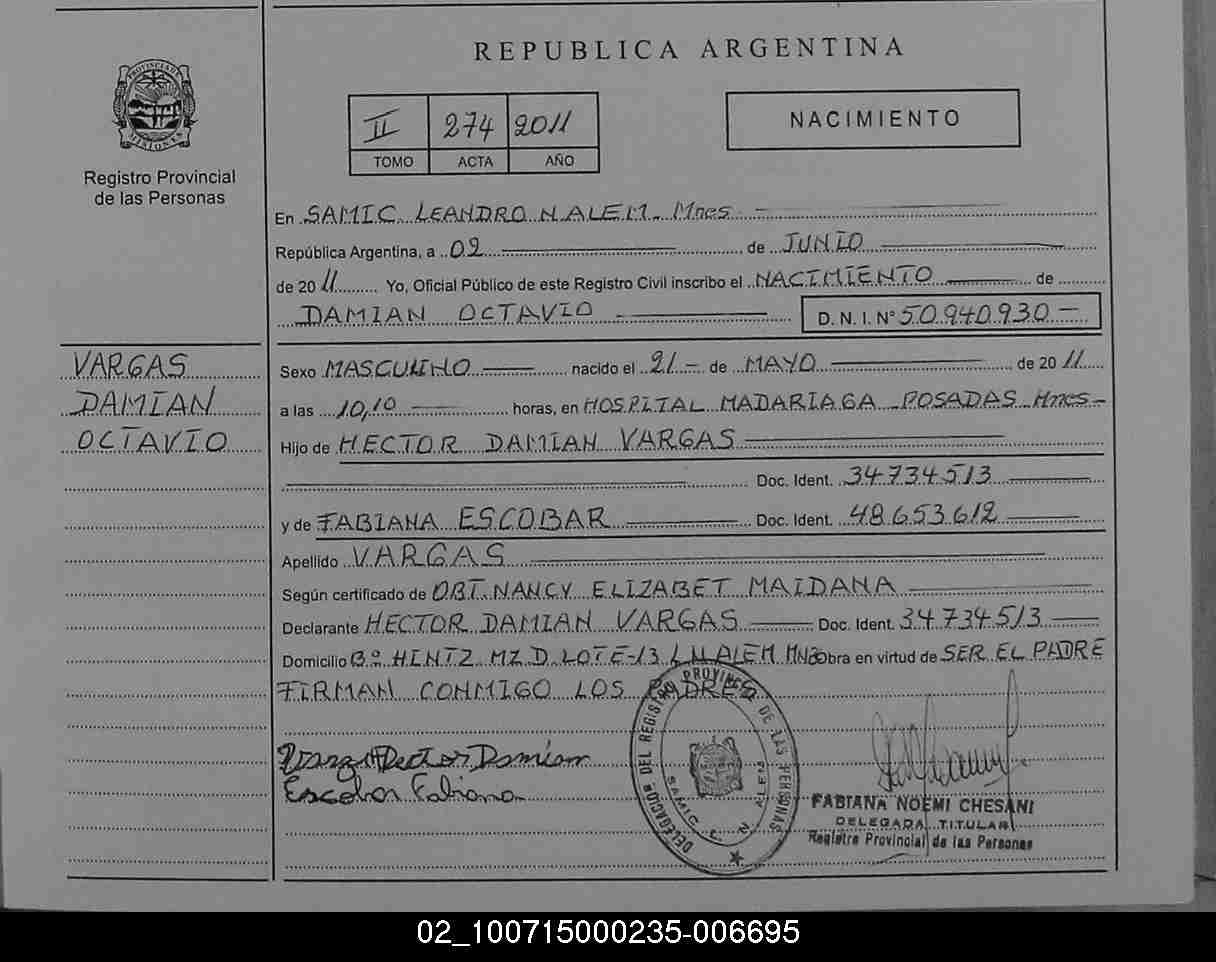 PROVINCIA DE
MISIONES
Registro Provincial
de las Personas
REPUBLICA ARGENTINA
II 274 2011
TOMO ACTA AÑO
NACIMIENTO
En SAMIC LEANDRO N ALEM. Mnes
República Argentina, a 02 de JUNIO
de 2011 Yo, Oficial Público de este Registro Civil inscribo el NACIMIENTO de
DAMIAN OCTAVIO D. N. I. N° 50.940.930-
VARGAS
DAMIAN
OCTAVIO
Sexo MASCULINO nacido el 21 - de MAYO de 2011
a las 10,10 horas, en HOSPITAL MADARIAGA POSADAS Mnes-
Hijo de HECTOR DAMIAN VARGAS
Doc. Ident. 34734513
y de FABIANA ESCOBAR Doc. Ident. 48653612
Apellido VARGAS
Según certificado de OBT. NANCY ELIZABET MAIDANA
Declarante HECTOR DAMIAN VARGAS Doc. Ident. 34734513
Domicilio B° HINTZ MZ D LOTE-13 L N ALEM MNES Obra en virtud de SER EL PADRE
FIRMAN CONMIGO LOS PADRES
Vargas Hector Damian
Escobar Fabiana
DELEGACION DEL REGISTRO PROVINCIAL DE LAS PERSONAS
SAMIC L. N. ALEM
FABIANA NOEMI CHESANI
DELEGADA TITULAR
Registro Provincial de las Personas
02_100715000235-006695